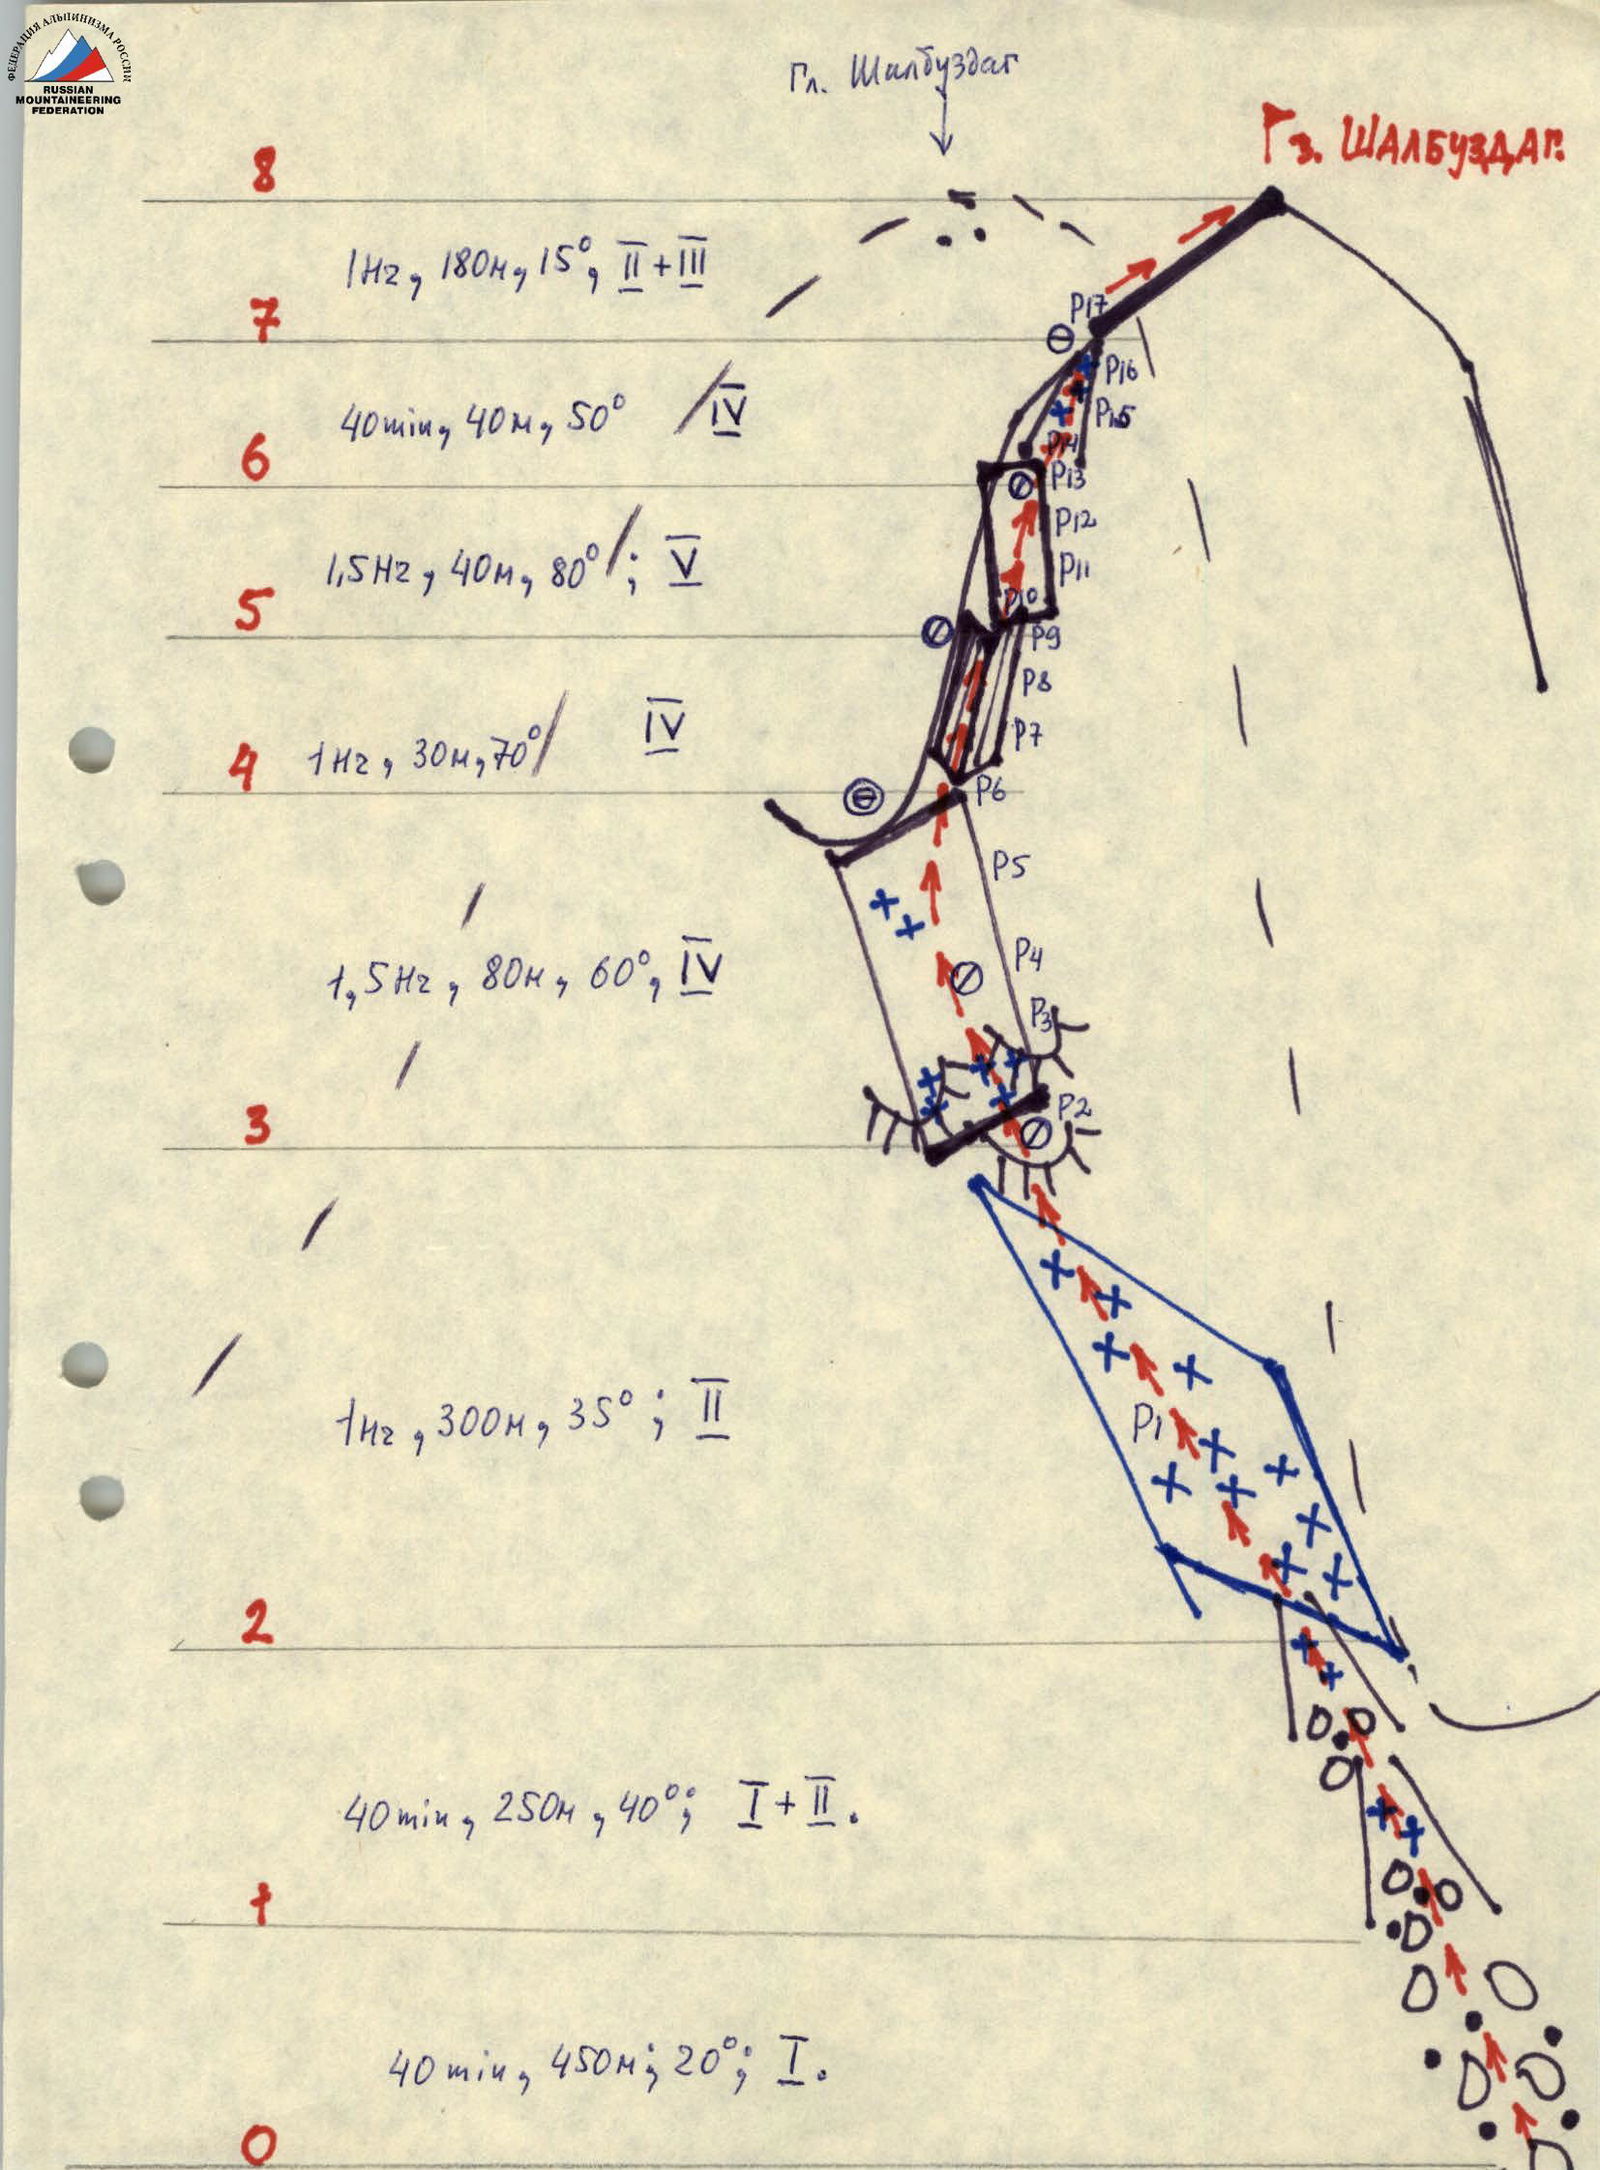 ФЕДЕРАЦИЯ АЛЬПИНИЗМА РОССИИ
RUSSIAN
MOUNTAINEERING
FEDERATION
Гл. Шалбуздаг
Гз. ШАЛБУЗДАГ.
8
1Hz, 180м, 15°, II+III
7
P17
40min, 40м, 50° IV
P16
P15
P14
6
P13
P12
1,5Hz, 40м, 80°; V
P11
P10
5
P9
P8
1Hz, 30м, 70° IV
P7
4
P6
P5
1,5Hz, 80м, 60°, IV
P4
P3
3
P2
1Hz, 300м, 35°; II
P1
2
40min, 250м, 40°; I+II.
1
40min, 450м; 20°; I.
0